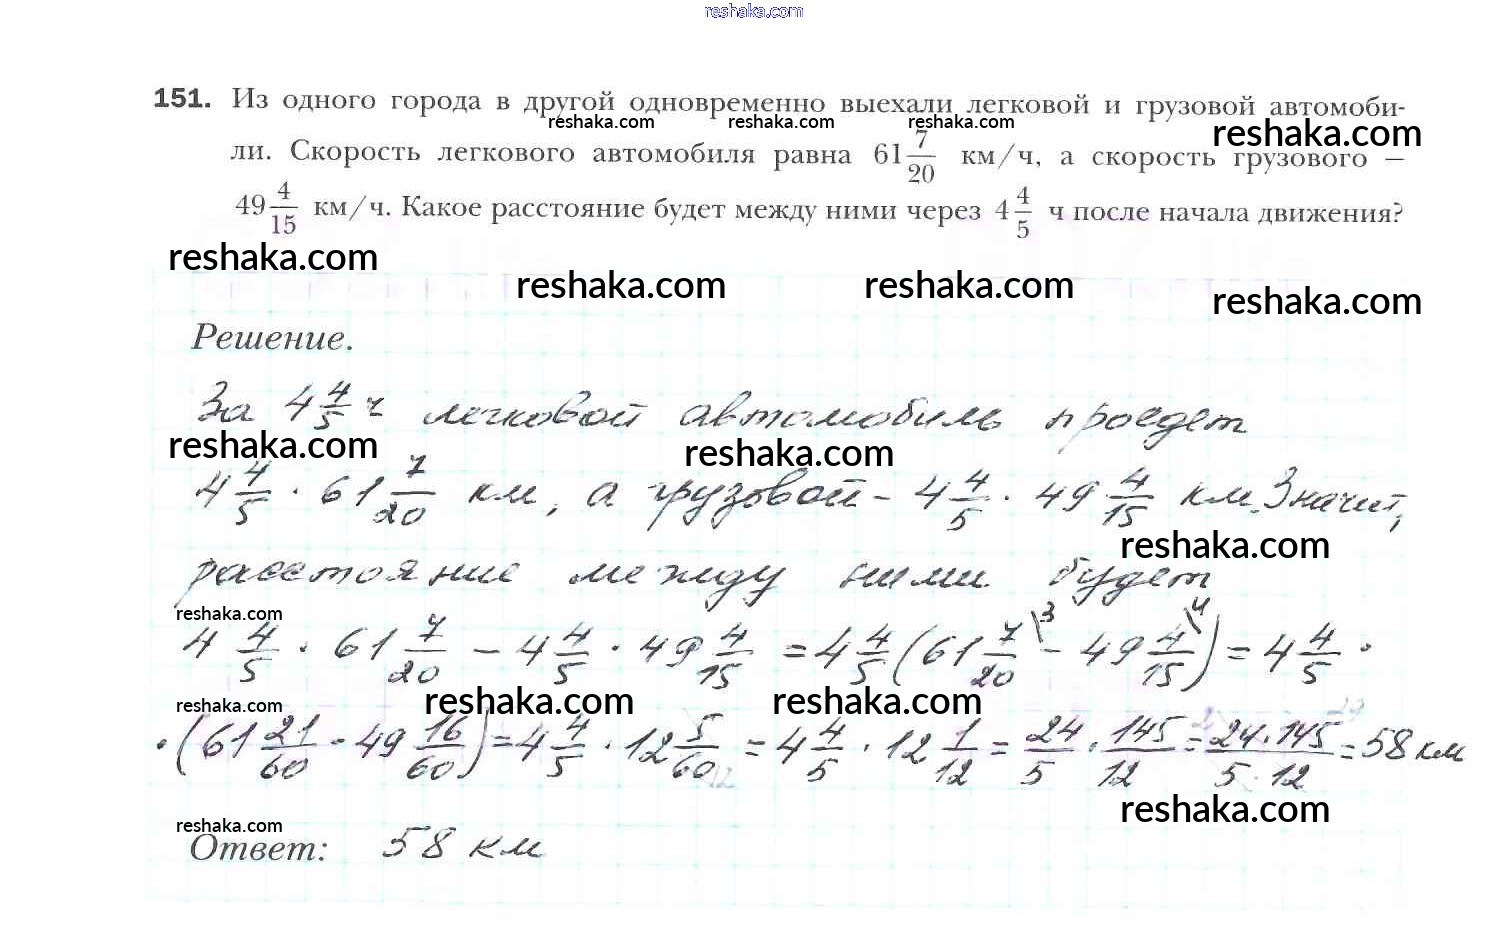 reshaka.com
151. Из одного города в другой одновременно выехали легковой и грузовой автомоби-
reshaka.com reshaka.com reshaka.com reshaka.com
ли. Скорость легкового автомобиля равна 61 7/20 км/ч, а скорость грузового –
49 4/15 км/ч. Какое расстояние будет между ними через 4 4/5 ч после начала движения?
reshaka.com reshaka.com reshaka.com reshaka.com
Решение.
За 4 4/5 ч легковой автомобиль проедет
reshaka.com reshaka.com
4 4/5 · 61 7/20 км, а грузовой – 4 4/5 · 49 4/15 км. Значит,
reshaka.com
расстояние между ними будет
reshaka.com
4 4/5 · 61 7/20 − 4 4/5 · 49 4/15 = 4 4/5 (61 7/20 \3 − 49 4/15 \4) = 4 4/5 ·
reshaka.com reshaka.com reshaka.com
· (61 21/60 − 49 16/60) = 4 4/5 · 12 5/60 = 4 4/5 · 12 1/12 = 24/5 · 145/12 = 24·145/5·12 = 58 км
reshaka.com
reshaka.com
Ответ: 58 км